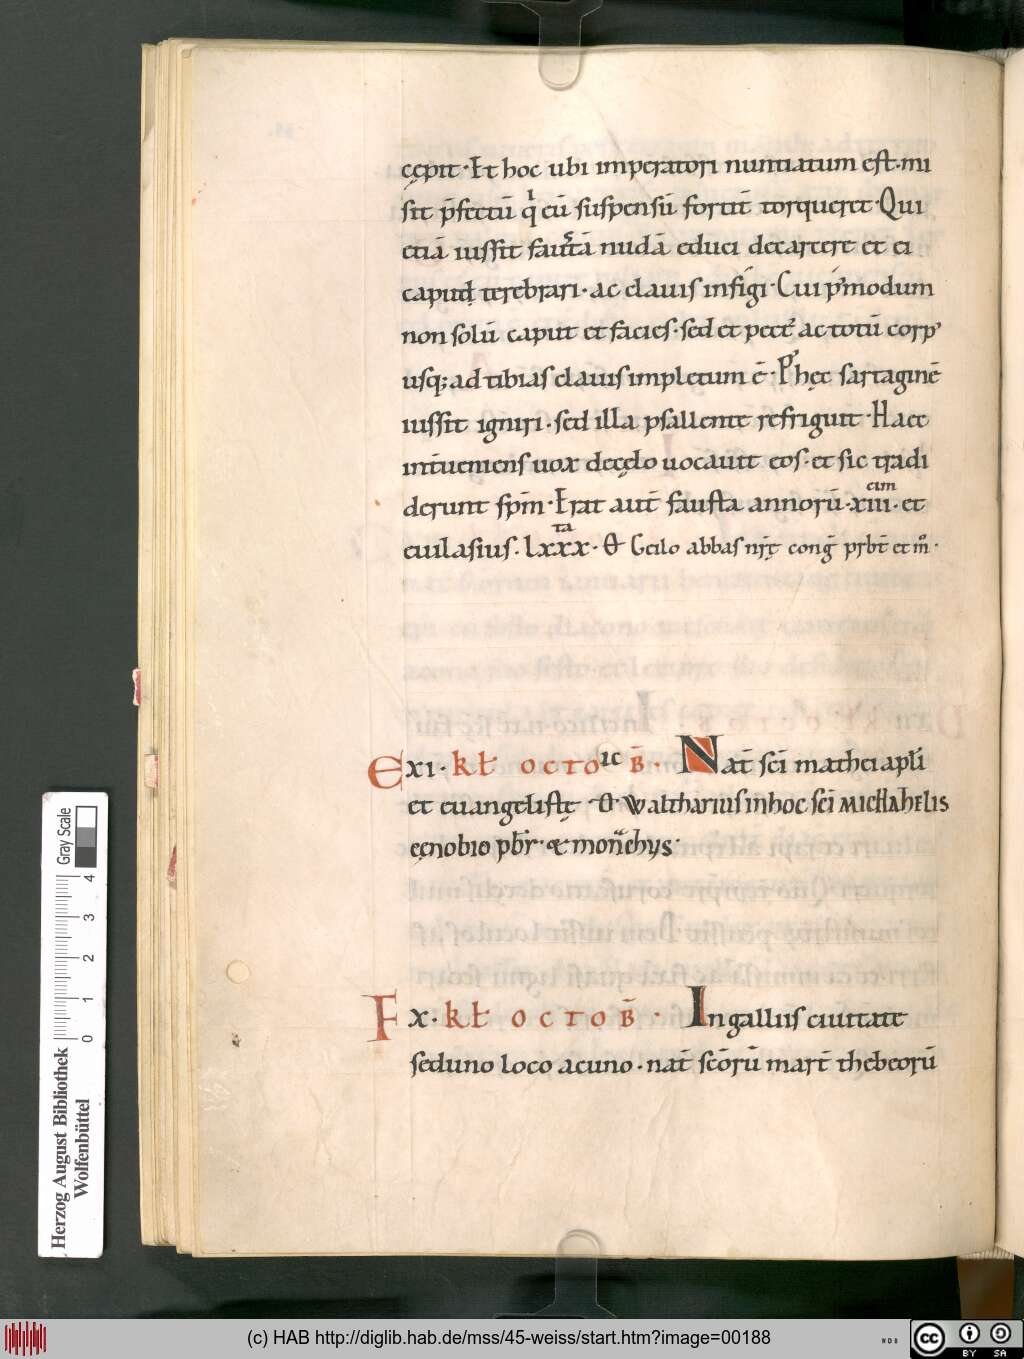 cępit · Et hoc ubi imperatori nuntiatum est · mi
sit p̄fectū qͥ eū suspensū fortit̄ torqueret · Qui
etiā iussit faustā nudā educi de carcere et ei
caput terebrari · ac clavis infigi · Cui p̓modum
non solū caput et facies · sed et pect᷒ ac totū corp᷒
usq; ad tibias clavis impletum ē · P᷒ hęc sartaginē
iussit igniri · sed illa psallente refriguit · Haec
int̄veniens vox de cęlo vocavit eos · et sic tradi
derunt spm̄ · Erat aut̄ fausta annorū · xiii^cim · et
euilasius · lxxx^ta · Θ Gelo abbas nr̄ę cong̅ prbt̄ et m̊ ·
E xi · kł octo^ic b̄ · Nat̄ sc̄i mathei apłi
et euangelistę · Θ Waltharius in hoc sc̄i MICHAhELIS
cęnobio pbr̄ · & mon̄chys ·
F x · kł octob̄ · In galliis civitate
seduno loco acuno · nat̄ scōrū mart̄ thebeorū
Gray Scale
0 1 2 3 4
Herzog August Bibliothek
Wolfenbüttel
(c) HAB http://diglib.hab.de/mss/45-weiss/start.htm?image=00188
WDB
cc BY SA